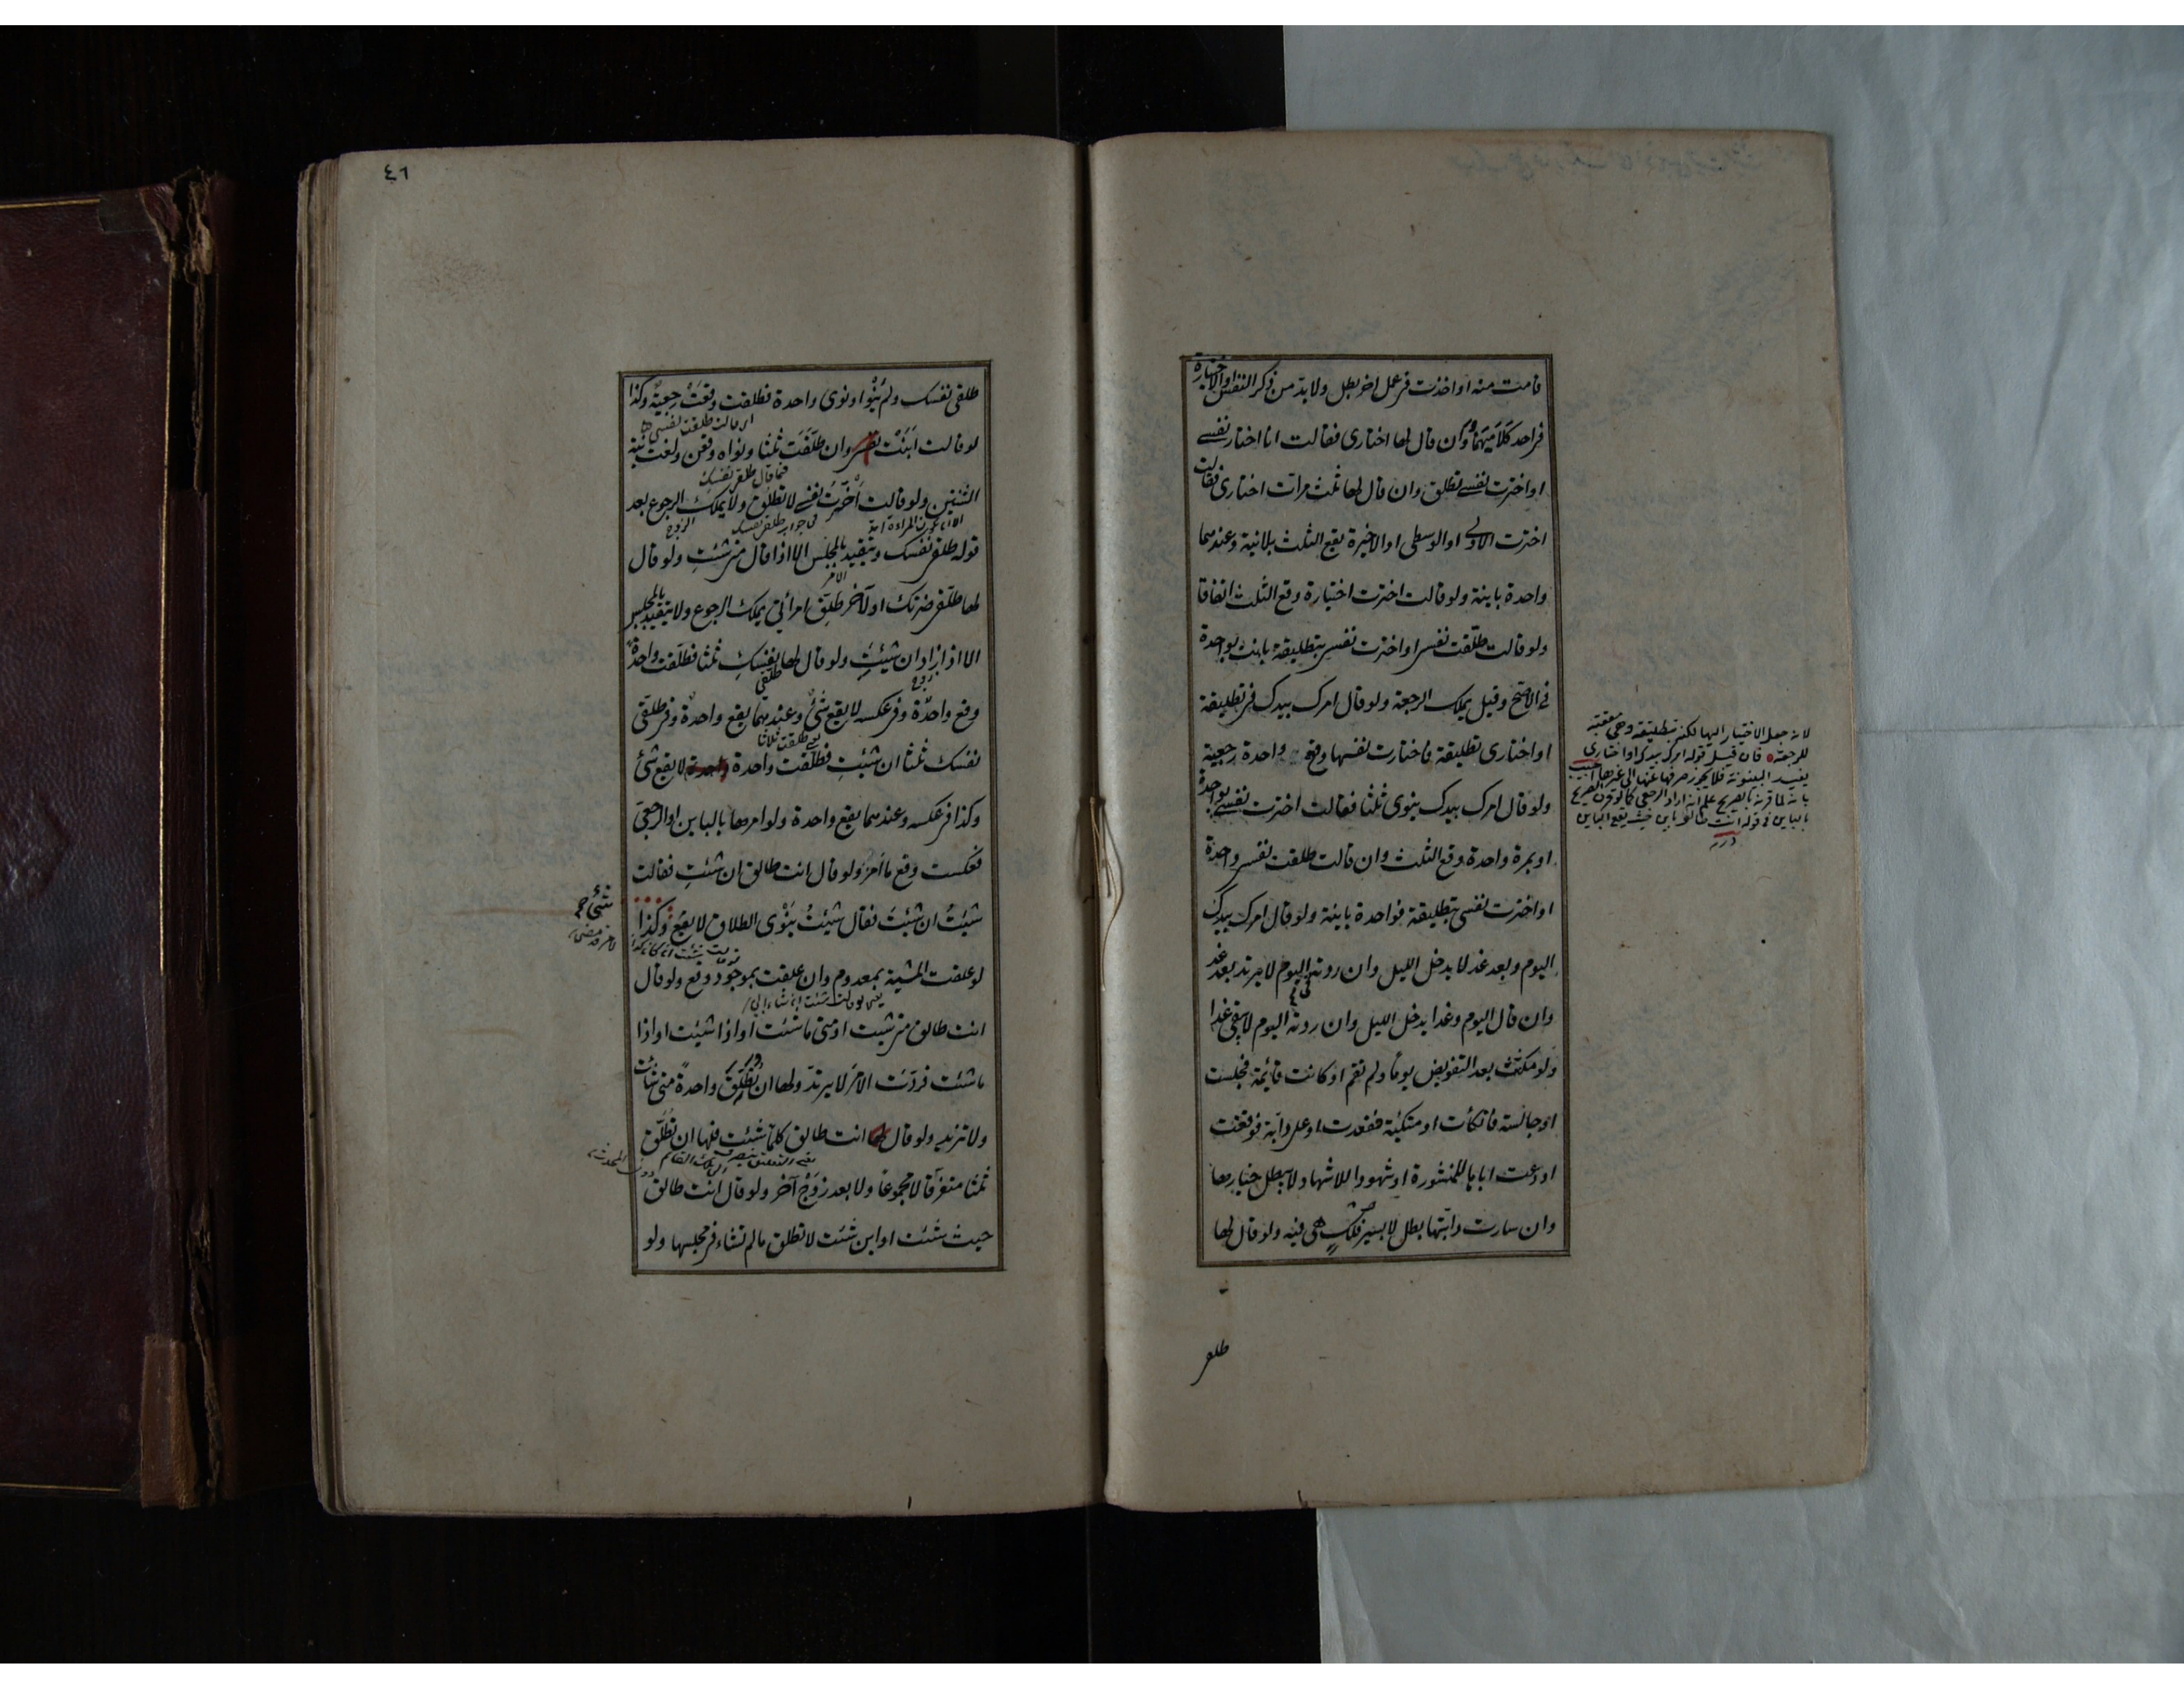 قامت منه او اخذت فى عمل اخر بطل ولا بد من ذكر النفس او الاختيارة
فى احد كلاميهما وان قال لها اختارى فقالت انا اختار نفسى
او اخترت نفسى تطلق وان قال لها ثلث مرات اختارى فقالت
اخترت الاولى او الوسطى او الاخيرة يقع الثلث بلا نية وعندهما
واحدة باينة ولو قالت اخترت اختيارة وقع الثلث اتفاقا
ولو قالت طلقت نفسى او اخترت نفسى بتطليقة بانت بواحدة
فى الاصح وقيل يملك الرجعة ولو قال امرك بيدك فى تطليقة
او اختارى تطليقة فاختارت نفسها وقع واحدة رجعية
ولو قال امرك بيدك ينوى ثلثا فقالت اخترت نفسى بواحدة
او بمرة واحدة وقع الثلث وان قالت طلقت نفسى واحدة
او اخترت نفسى بتطليقة فواحدة باينة ولو قال امرك بيدك
اليوم وبعد غد لا يدخل الليل وان ردته اليوم لا يرتد بعد غد
وان قال اليوم وغدا يدخل الليل وان ردته اليوم لا يبقى غدا
ولو مكثت بعد التفويض يوما ولم تقم او كانت قائمة فجلست
او جالسة فاتكأت او متكئة فقعدت او على دابة فوقفت
او دعت اباها للمشورة او شهودا للاشهاد لا يبطل خيارها
وان سارت دابتها بطل لا بسير فلك هى فيه ولو قال لها
طلقى
لانه جعل الاختيار اليها لكنه بتطليقة وهى معقبة
للرجعة فان قيل قوله امرك بيدك او اختارى
يفيد البينونة فلا يجوز صرفها عنها الى غيرها اجيب
بانه لما قرنه بالصريح علم انه اراد الرجعى كما لو قرن الصريح
بالباين فى قوله انت طالق باين حيث يقع الباين
درر
٤٦
طلقى نفسك ولم ينو او نوى واحدة فطلقت وقعت رجعية وكذا
لو قالت ابنت نفسى وان طلقت ثلثا ونواه وقعن ولغت نية
الثنتين ولو قالت اخترت نفسى لا تطلق ولا يملك الرجوع بعد
قوله طلقى نفسك ويتقيد بالمجلس الا اذا قال متى شئت ولو قال
لها طلقى ضرتك او لآخر طلق امرأتى يملك الرجوع ولا يتقيد بالمجلس
الا اذا زاد ان شئت ولو قال لها طلقى نفسك ثلثا فطلقت واحدة
وقع واحدة وفى عكسه لا يقع شئ وعندهما يقع واحدة وفى طلقى
نفسك ثلثا ان شئت فطلقت واحدة لا يقع شئ
وكذا فى عكسه وعندهما يقع واحدة ولو امرها بالباين او الرجعى
فعكست وقع ما امر ولو قال انت طالق ان شئت فقالت
شئت ان شئت فقال شئت ينوى الطلاق لا يقع وكذا
لو علقت المشية بمعدوم وان علقت بموجود وقع ولو قال
انت طالق متى شئت او متى ما شئت او اذا شئت او اذا
ما شئت فردت الامر لا يرتد ولها ان تطلق واحدة متى شائت
ولا تزيد ولو قال انت طالق كلما شئت فلها ان تطلق
ثلثا متفرقا لا مجموعا ولا بعد زوج آخر ولو قال انت طالق
حيث شئت او اين شئت لا تطلق ما لم تشاء فى مجلسها ولو